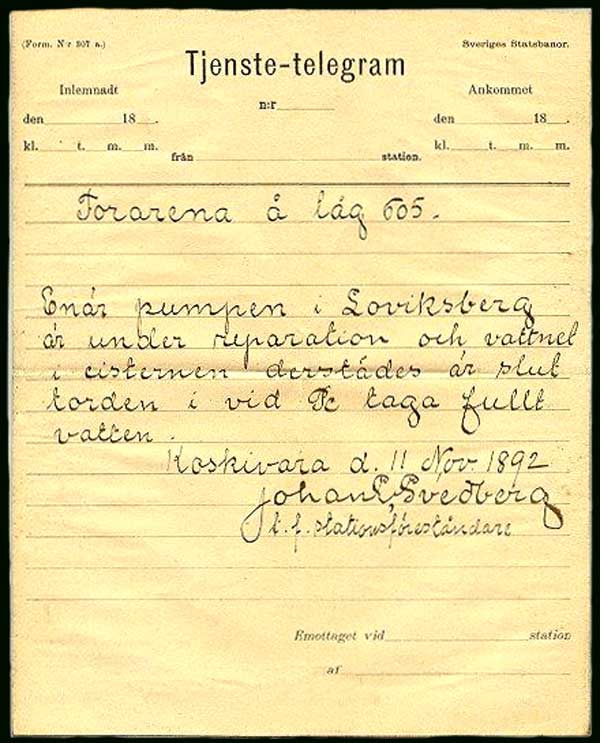 (Form. N:r 307 a.)
Sveriges Statsbanor.
Tjenste-telegram
Inlemnadt
n:r
Ankommet
den 18 .
den 18 .
kl. t. m. m.
från station.
kl. t. m. m.
Forarena å låg 605.
Enär pumpen i Loviksberg
är under reparation och vattnet
i cisternen derstädes är slut
torden i vid Pc taga fullt
vatten.
Koskivara d. 11 Nov. 1892
Johan Svedberg
t. f. stationsföreståndare
Emottaget vid station
af